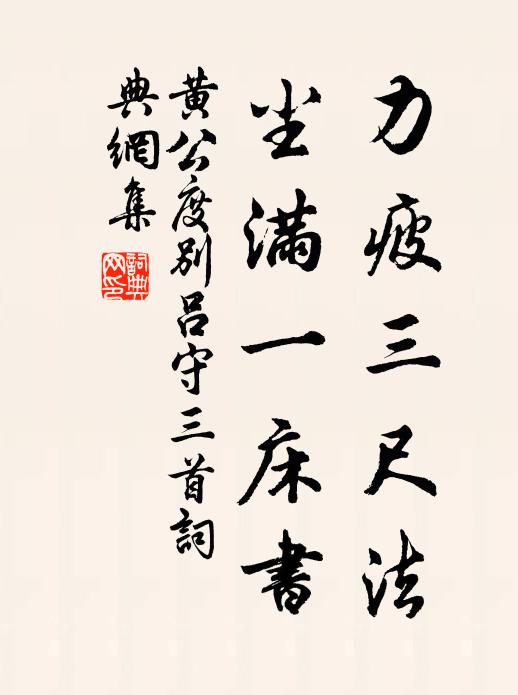 力疲三尺法
尘满一床書
黄公度别吕守三首詞
典網集
詞典
网印